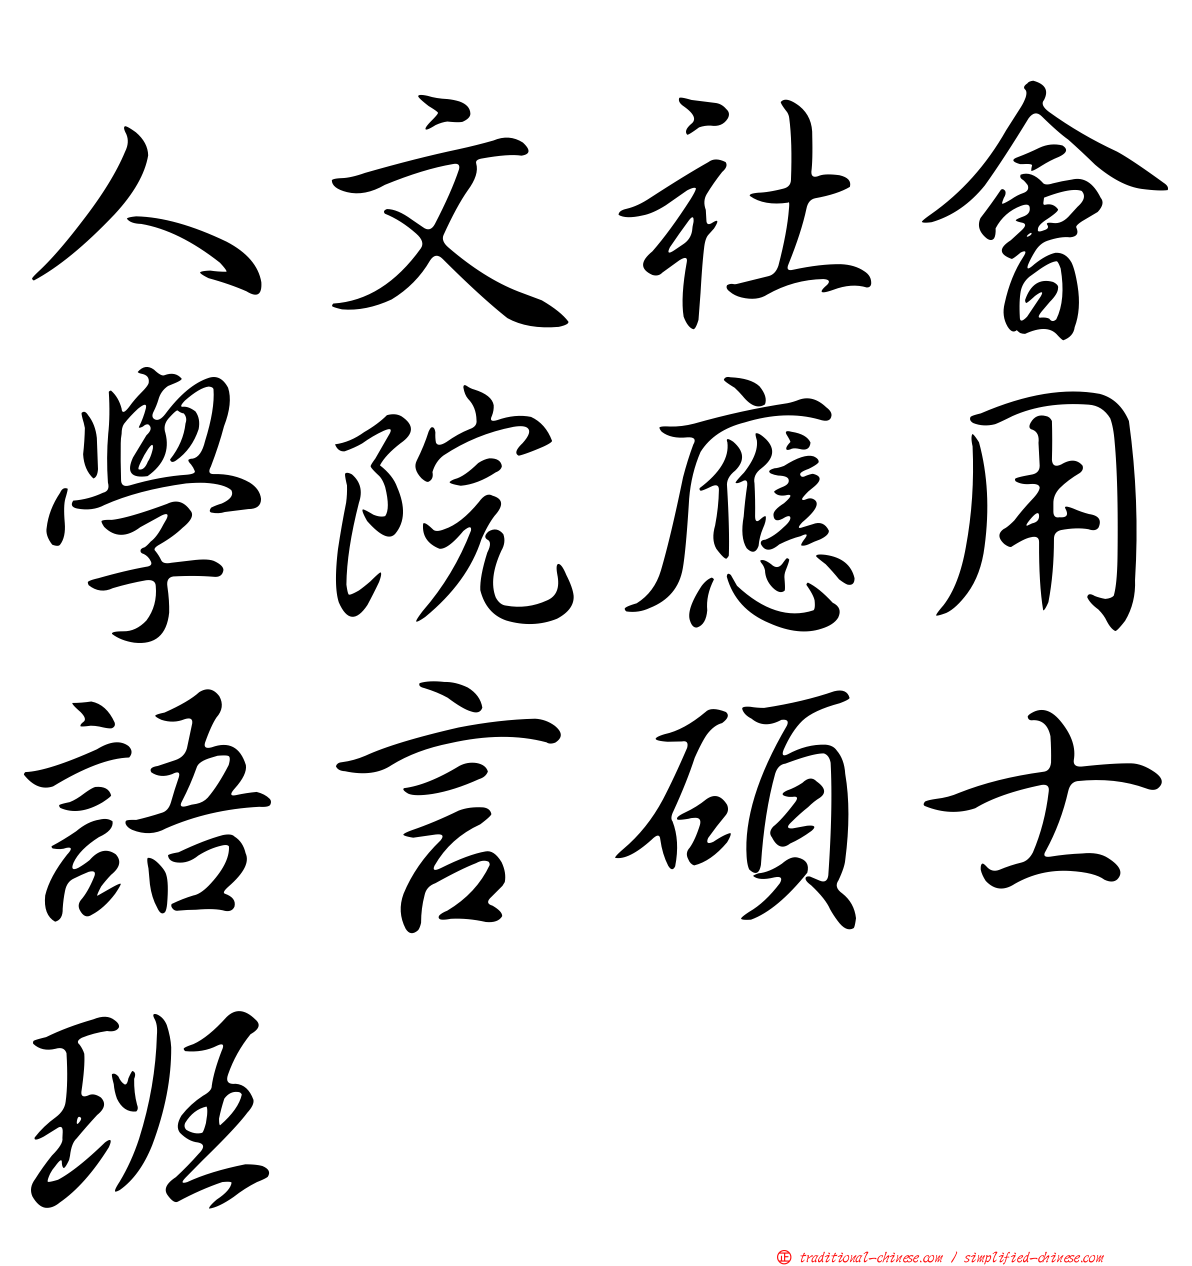 人文社會
學院應用
語言碩士
班
正 traditional-chinese.com / simplified-chinese.com